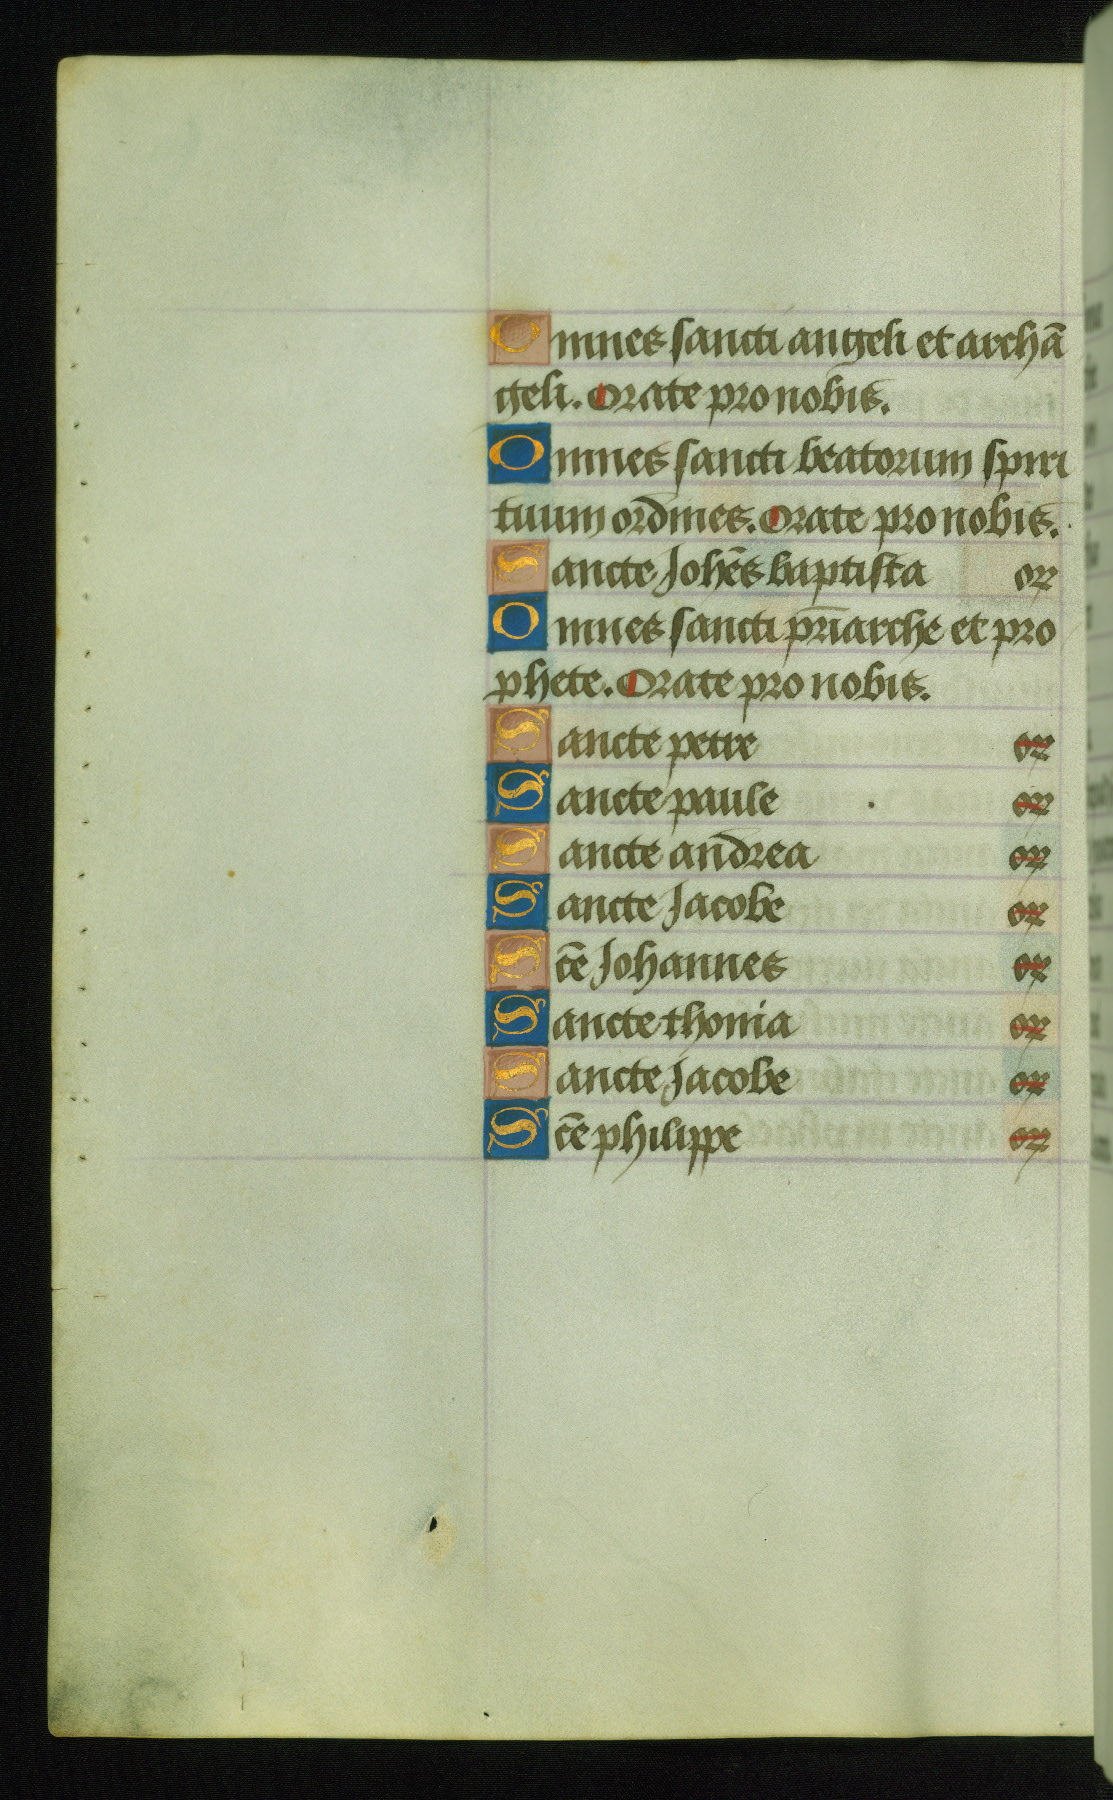 Omnes sancti angeli et archā
geli. Orate pro nobis.
Omnes sancti beatorum spiri
tuum ordines. Orate pro nobis.
Sancte Johēs baptista or
Omnes sancti pr̄iarche et pro
phete. Orate pro nobis.
Sancte petre or
Sancte paule or
Sancte andrea or
Sancte Jacobe or
Sc̄e Johannes or
Sancte thoma or
Sancte Jacobe or
Sc̄e philippe or